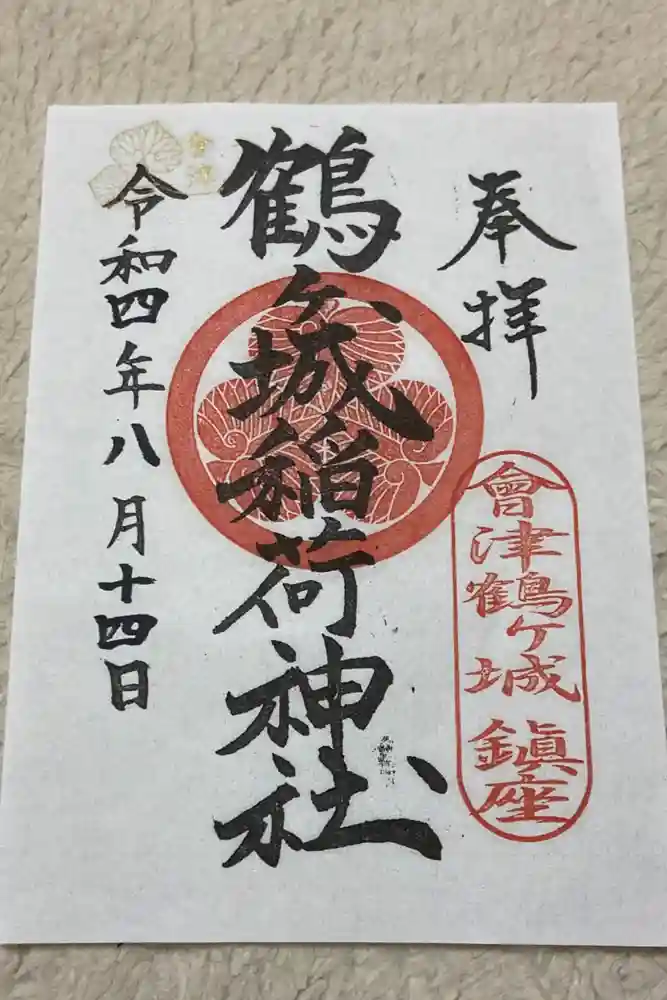 奉拝
會津鶴ヶ城 鎭座
鶴ヶ城稲荷神社
令和四年八月十四日
會津